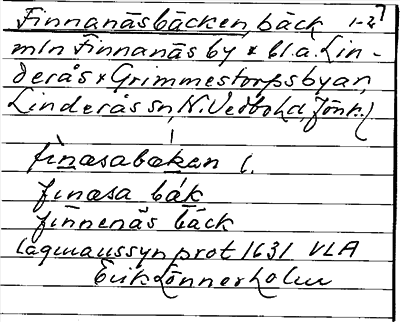 Finnanäsbäcken, bäck 1-27
mln Finnanäs by & bl.a. Lin-
derås & Grimmestorps byar,
Linderås sn, N. Vedbo hd, Jönk.l
finæsabækæn l.
finæsa bäk
finnenäs bäck
lagmanssynprot 1631 VLA
Erik Lönnerholm